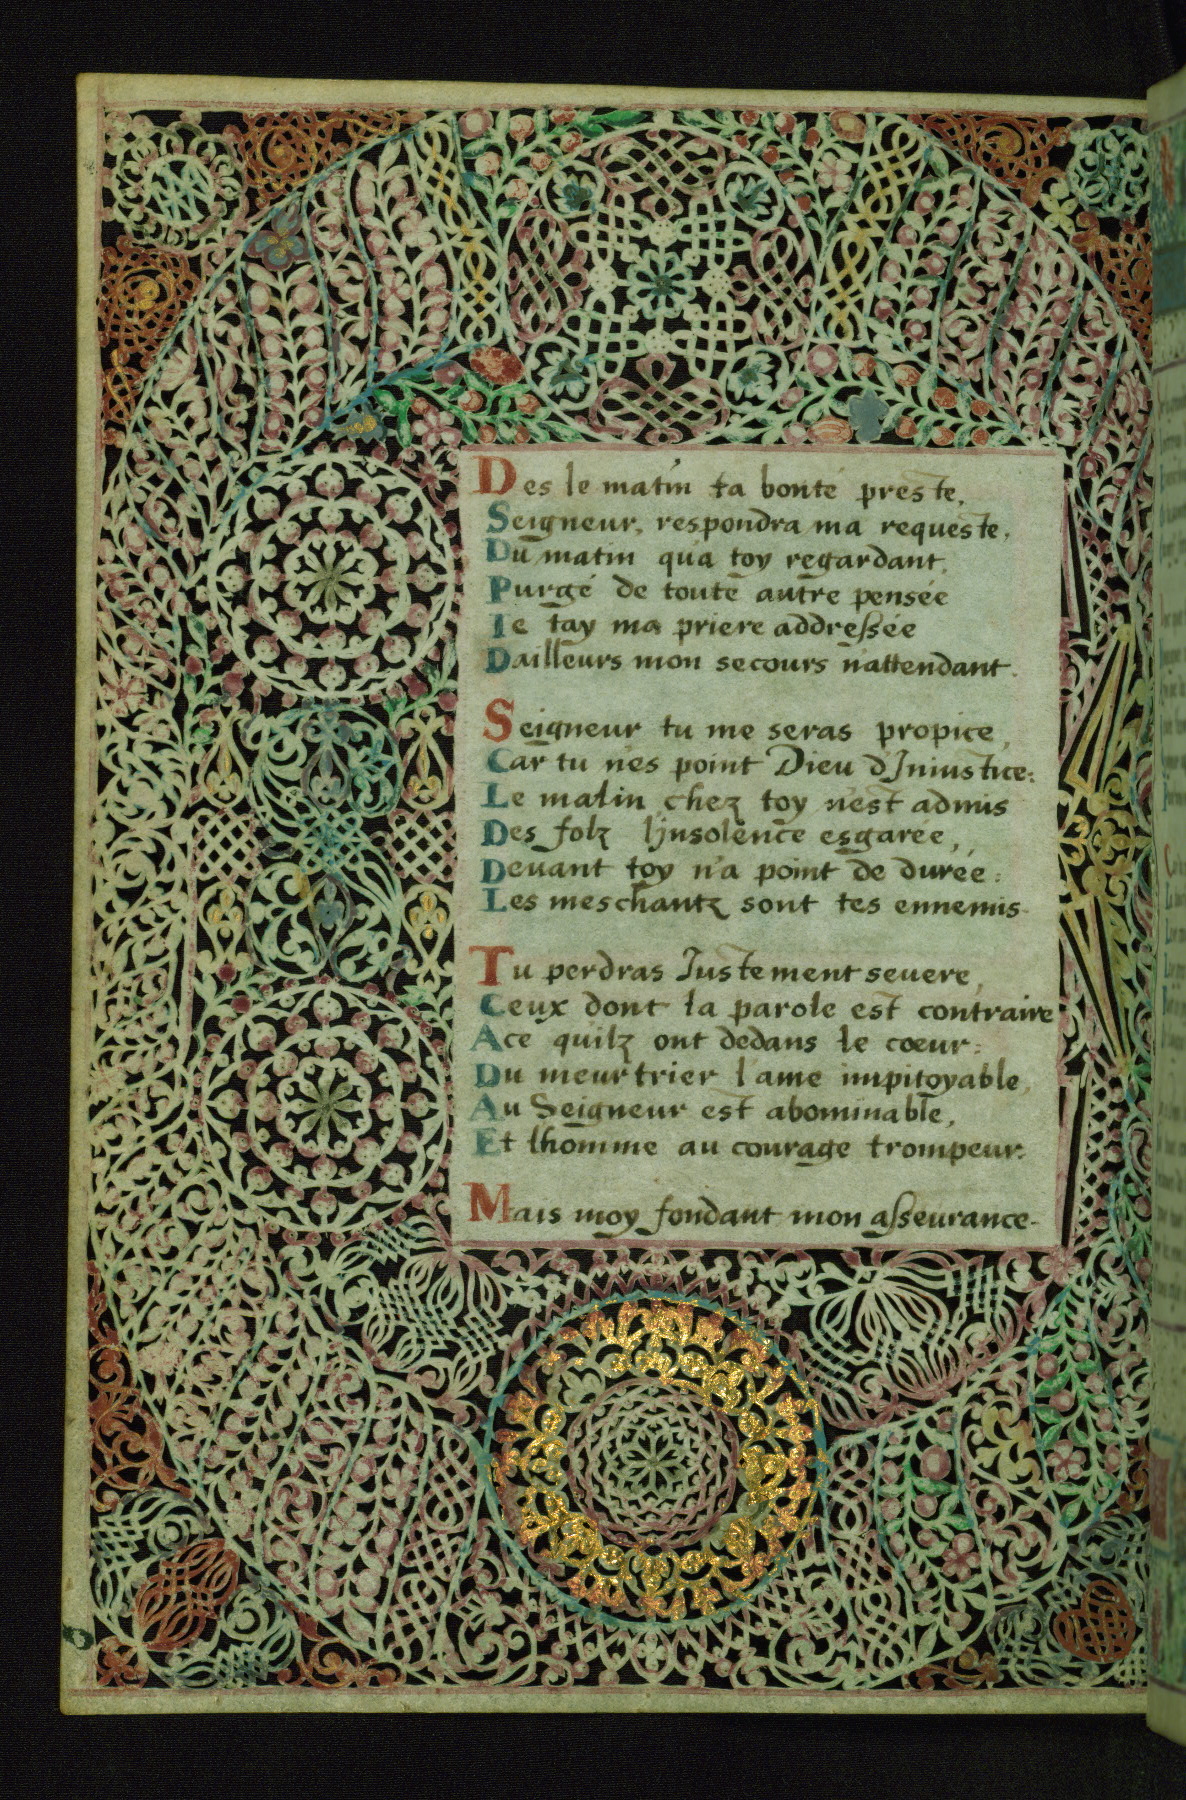 Des le matin ta bonté preste,
Seigneur, respondra ma requeste,
Du matin qua toy regardant,
Purgé de toute autre pensée
Ie tay ma priere addressée
Dailleurs mon secours n'attendant.
Seigneur tu me seras propice,
Car tu n'es point Dieu d'Iniustice:
Le matin chez toy n'est admis
Des folz l'insolence esgarée,
Deuant toy n'a point de durée:
Les meschantz sont tes ennemis.
Tu perdras Iustement seuere,
Ceux dont la parole est contraire
Ace quilz ont dedans le cœur:
Du meurtrier l'ame impitoyable,
Au Seigneur est abominable,
Et lhomme au courage trompeur.
Mais moy fondant mon asseurance